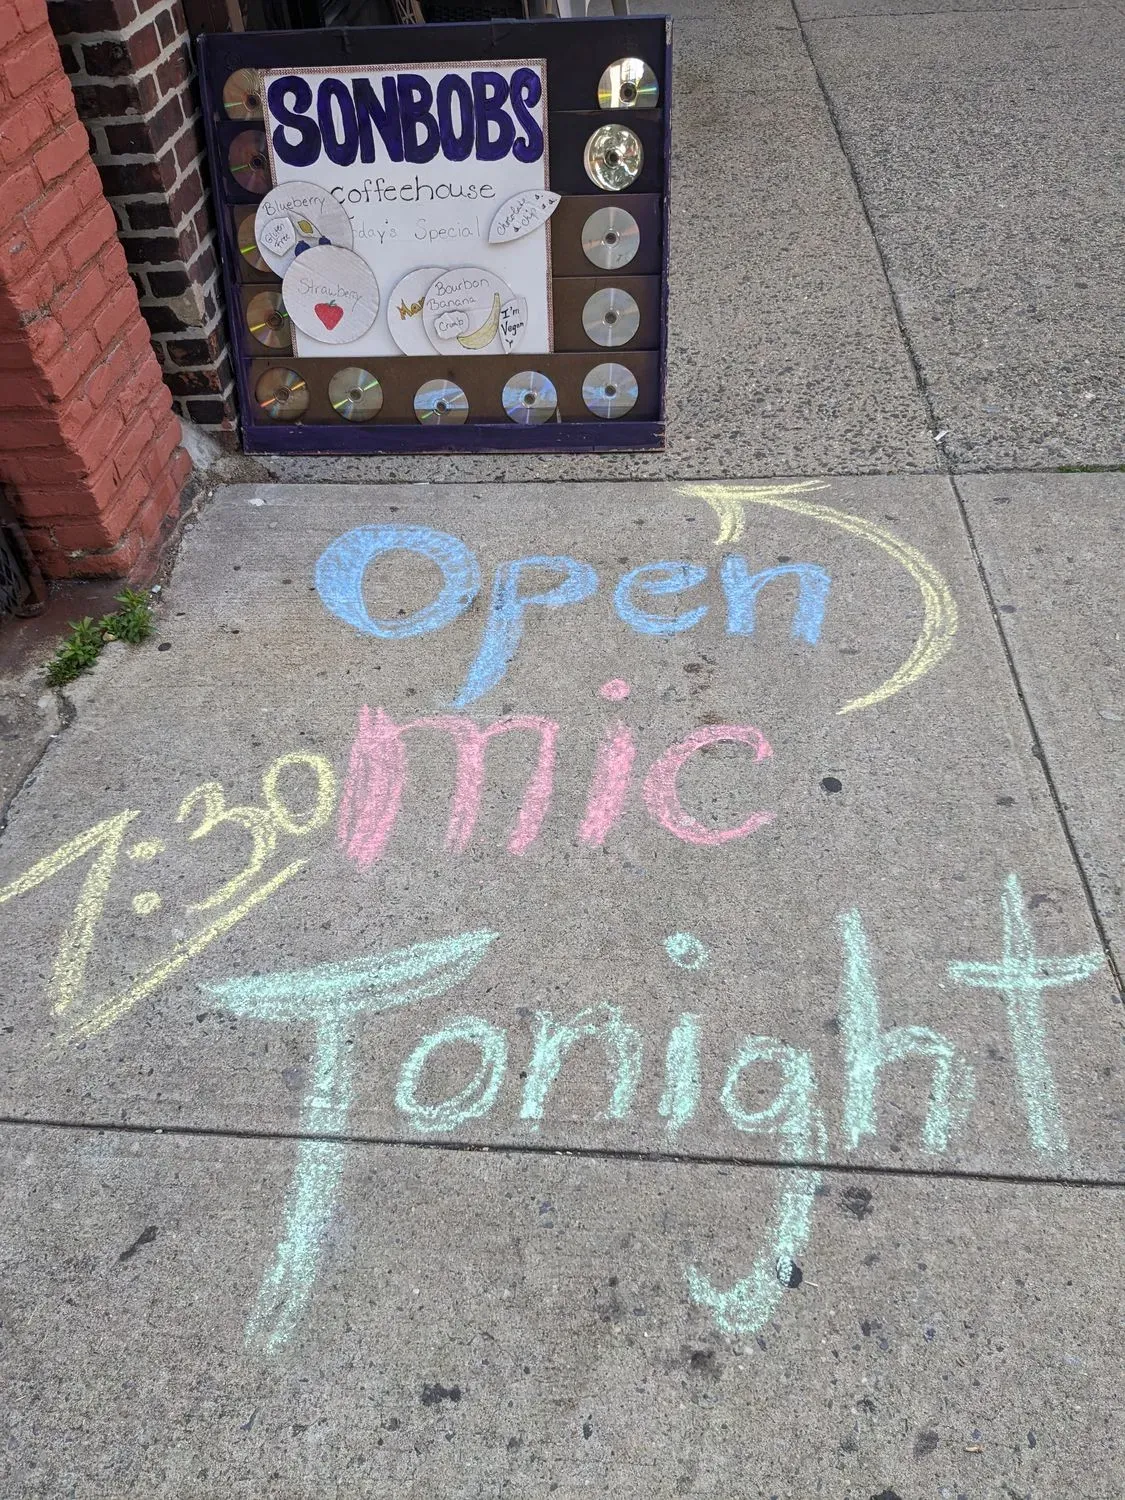 SONBOBS
coffeehouse
Special
Blueberry
Gluten
Free
chocolate
chip
Strawberry
Bourbon
Banana
Crumb
I'm
Vegan
Open
mic
7:30
Tonight